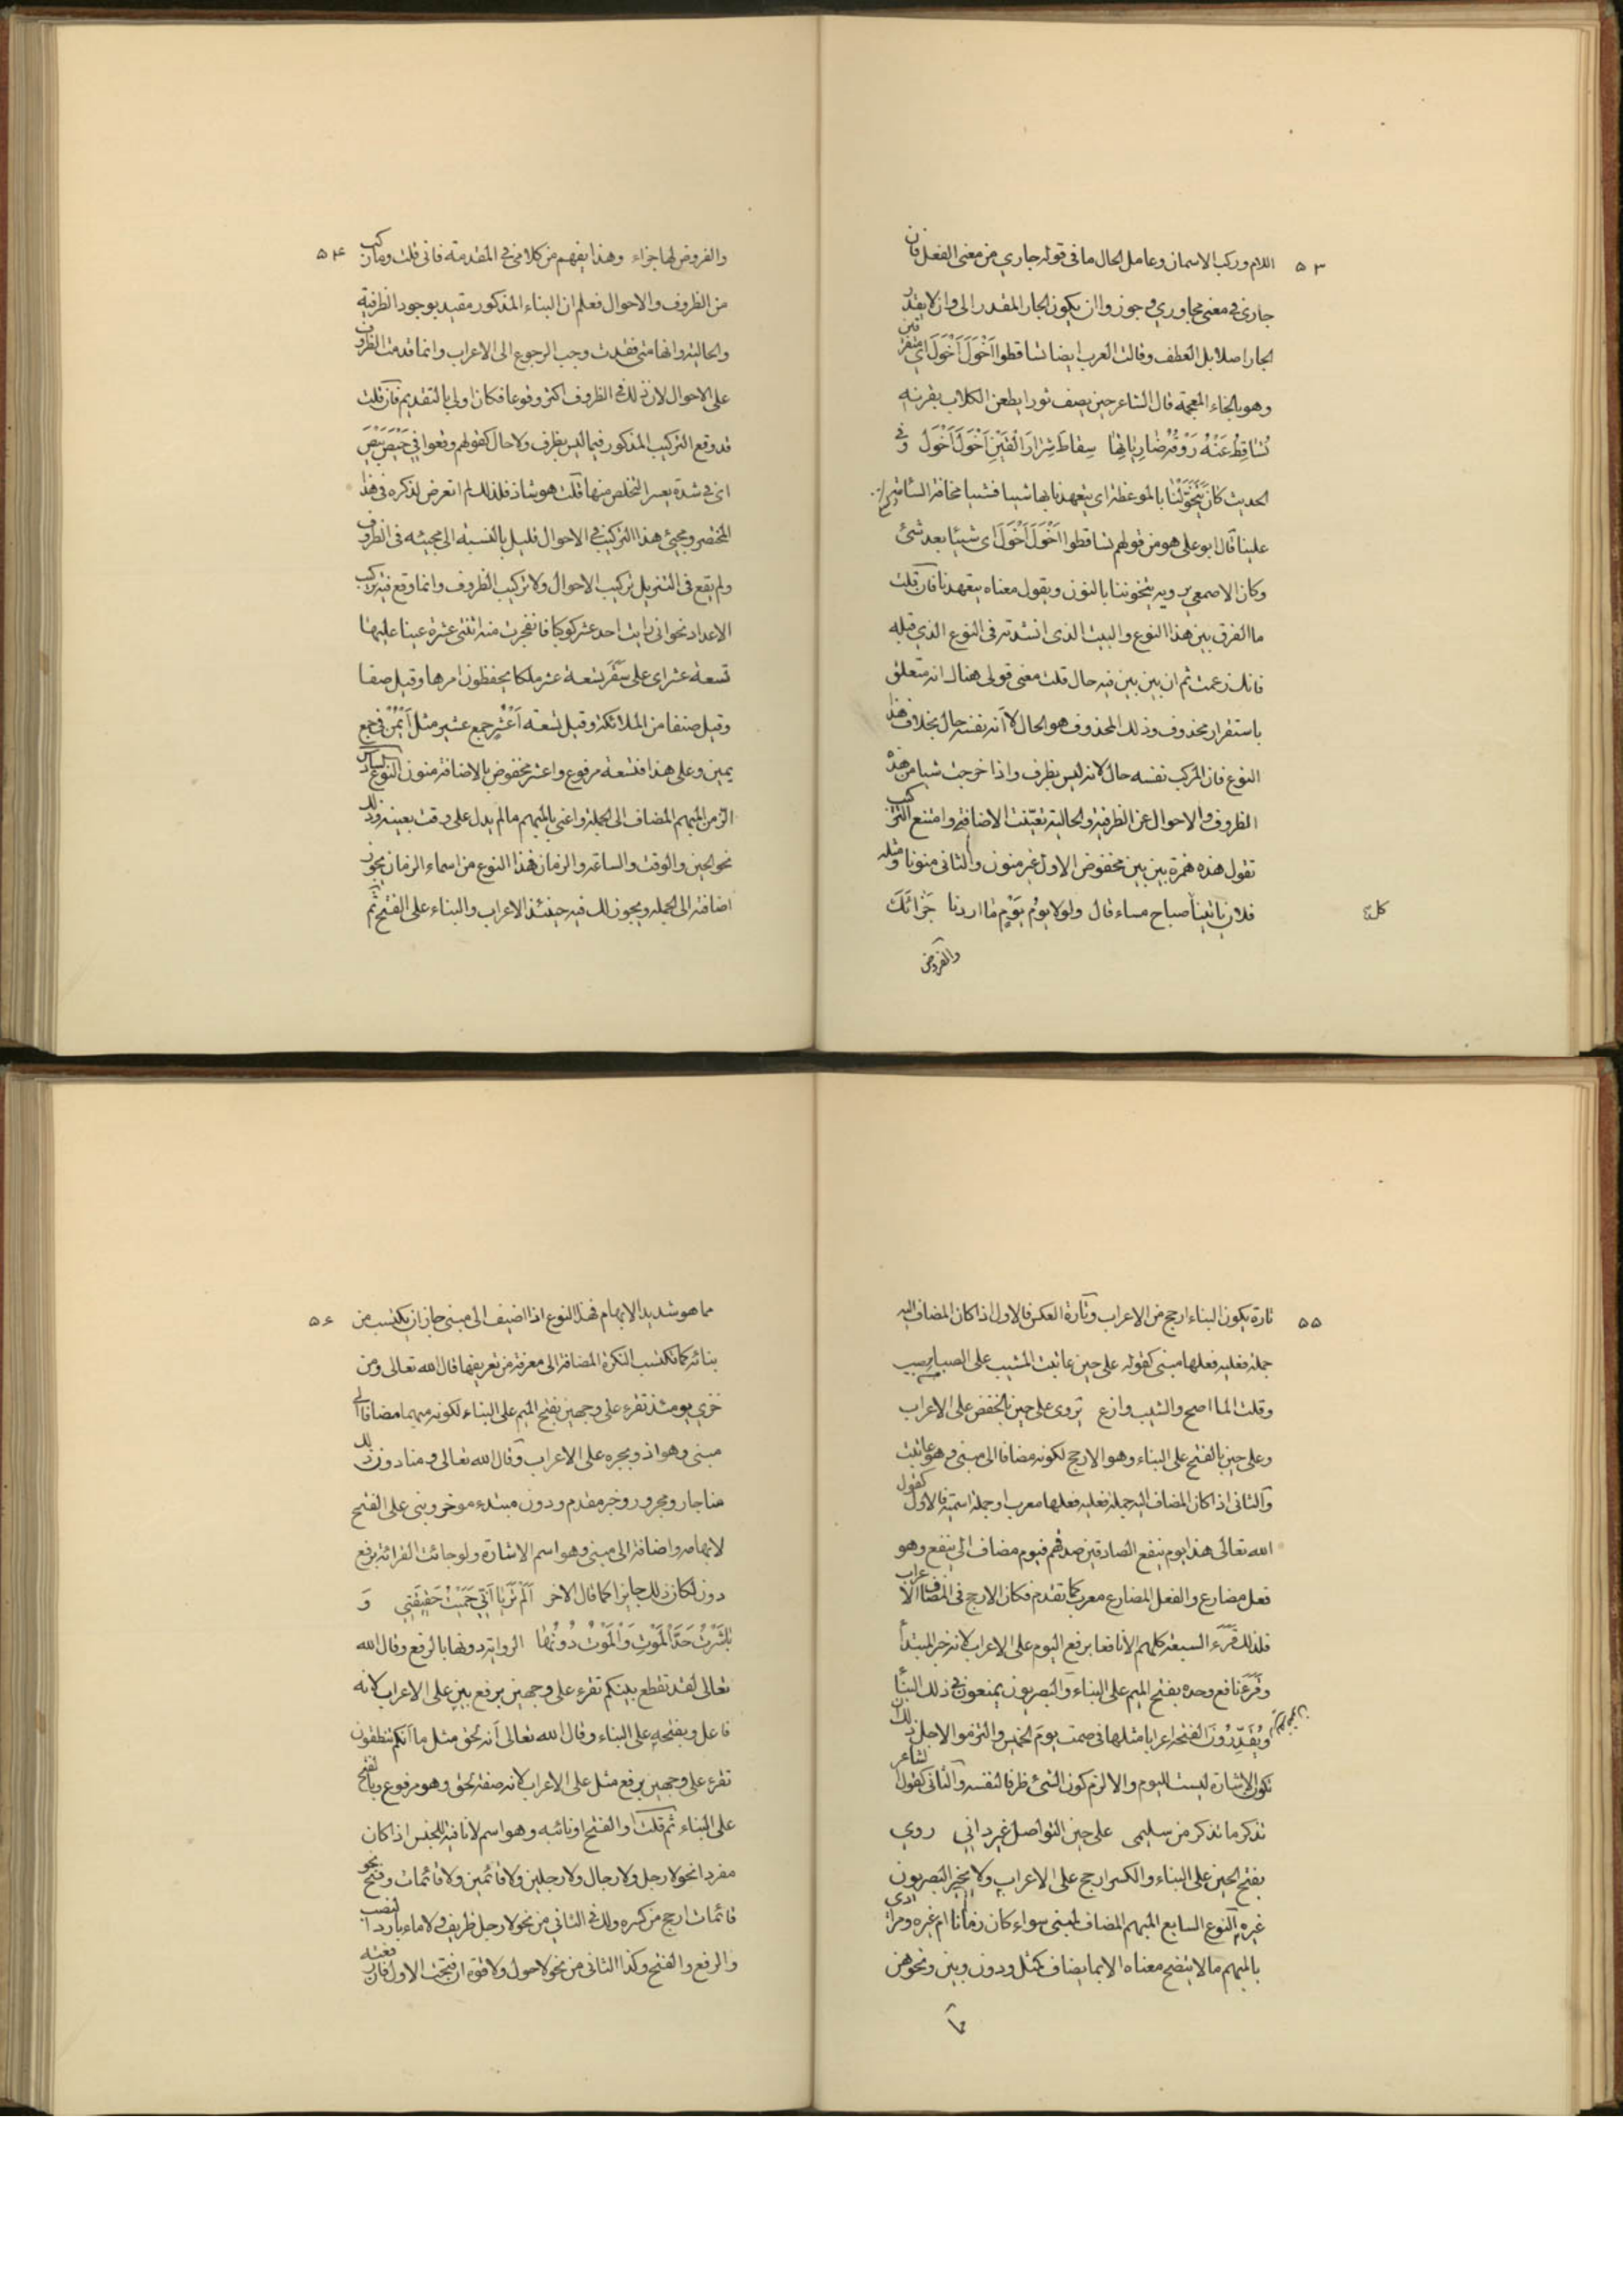 ٥٣
اللام وركب الاسمان وعامل الحال ما فى قوله جاري من معنى الفعل فان
جارى فى معنى مجاوري وجوزوا ان يكون الجار المقدر الى وان لا يقدر
الجار اصلا بل العطف وقالت العرب ايضا تساقطوا اَخْوَلَ اَخْوَلَ اى متفرقين
وهو بالخاء المعجمة قال الشاعر حين يصف ثورا يطعن الكلاب بقرنيه
تُسٰاقِطُ عَنْهُ رَوْقُهُ ضٰارِيٰاتِهٰا سِقاطَ شِرٰارِ الْقَيْنِ اَخْوَلَ اَخْوَلٰ وفى
الحديث كانَ يَتَخَوَّلُنٰا بالموعظة اى يتعهدنا بها شيئا فشيئا مخافة السئامة
علينا قال ابو على هو من قولهم تساقطوا اَخْوَلَ اَخْوَلَ اى شيئا بعد شئ
وكان الاصمعى يرويه يتخوننا بالنون ويقول معناه يتعهدنا فان قلت
ما الفرق بين هذا النوع والبيت الذى انشدته فى النوع الذي قبله
فانك زعمت ثم ان بين بين فيه حال قلت معنى قولى هناك انه متعلق
باستقرار محذوف وذلك المحذوف هو الحال لا انه نفسه حال بخلاف هذا
النوع فان المركب نفسه حال لانه ليس بظرف واذا خرجت شيا من هذه
الظروف والاحوال عن الظرفية والحالية تعيّنت الاضافة وامتنع التركيب
تقول هذه همزة بين بين مخفوض الاول غير منون والثانى منونا ومثله
فلان ياتينا صباح مساء قال ولولا يومُ يَوْمٍ مٰا اردنا جَزٰائَكَ
كلّ
والفروض
٥٤
والفروض لها جزاء وهذا يفهم من كلامى فى المقدمة فانى قلت وما ركب
من الظروف والاحوال فعلم ان البناء المذكور مقيد بوجود الظرفية
والحالية وانها متى فقدت وجب الرجوع الى الاعراب وانما قدمت الظروف
على الاحوال لان ذلك فى الظروف اكثر وقوعا فكان اولى بالتقديم فان قلت
قد وقع التركيب المذكور فيما ليس بظرف ولا حال كقولهم وقعوا فى حَيْصَ بَيْصَ
اى فى شدة يعسر التخلص منها قلت هو شاذ فلذلك لم اتعرض لذكره فى هذا
المختصر ومجيئ هذا التركيب فى الاحوال قليل بالنسبة الى مجيئه فى الظروف
ولم يقع فى التنزيل تركيب الاحوال ولا تركيب الظروف وانما وقع فيه تركيب
الاعداد نحو انى رايت احد عشر كوكبا فانفجرت منه اثنتى عشرة عينا عليها
تسعة عشر اى على سَقَرَ تسعة عشر ملكا يحفظون امرها وقيل صفا
وقيل صنفا من الملائكة وقيل تسعة اَعْشُرٍ جمع عشير مثل اَيْمُنْ فى جمع
يمين وعلى هذا فتسعة مرفوع واعشر مخفوض بالاضافة منون النوع السادس
الزمن المبهم المضاف الى الجملة واعنى بالمبهم ما لم يدل على وقت بعينه وذلك
نحو الحين والوقت والساعة والزمان فهذا النوع من اسماء الزمان يجوز
اضافته الى الجملة ويجوز لك فيه حينئذ الاعراب والبناء على الفتح ثم
٥٥
تارة يكون البناء ارجح من الاعراب وتارة العكس فالاول اذا كان المضاف اليه
جملة فعلية فعلها مبنى كقوله على حين عاتبت المشيب على الصبا
وقلت الما اصح والشيب وازع يروى على حين بالخفض على الاعراب
وعلى حين بالفتح على البناء وهو الارجح لكونه مضافا الى مبنى وهو عاتبت
والثانى اذا كان المضاف اليه جملة فعلية فعلها معرب او جملة اسمية فالاول كقول
الله تعالى هذا يوم ينفع الصادقين صدقهم فيوم مضاف الى ينفع وهو
فعل مضارع والفعل المضارع معرب كما تقدم فكان الارجح فى المضاف الاعراب
فلذلك قَرَءَ السبعة كلهم الا نافعا برفع اليوم على الاعراب لانه خبر المبتدأ
وقَرَءَ نافع وحده بفتح الميم على البناء والبصريون يمنعون فى ذلك البناء
ويُقَدِّرُونَ الفتحة اعرابا مثلها فى صمت يوم الخميس والتزموا لاجل ذلك ان
تكون الاشارة ليست لليوم والا لزم كون الشئ ظرفا لنفسه والثانى كقول الشاعر
تذكر ما تذكر من سليمى على حين التواصل غير دانى روي
بفتح الحين على البناء والكسر ارجح على الاعراب ولا يجيز البصريون
غيره النوع السابع المبهم المضاف لمبنى سواء كان زمانا ام غيره ومرادى
بالمبهم ما لا يتضح معناه الا بما يضاف كمثل ودون وبين ونحوهن
مما
٥٦
مما هو شديد الابهام فهذا النوع اذا اضيف الى مبنى جاز ان يكتسب من
بنائه كما تكتسب النكرة المضافة الى معرفة من تعريفها قال الله تعالى ومن
خزي يومئذ تقرء على وجهين بفتح الميم على البناء لكونه مبهما مضافا الى
مبنى وهو اذ وبجره على الاعراب وقال الله تعالى ومنا دون ذلك
منا جار ومجرور وخبر مقدم ودون مبتدء موخر وبنى على الفتح
لابهامه واضافته الى مبنى وهو اسم الاشارة ولو جائت القرائة برفع
دون لكان ذلك جايزا كما قال الاخر اَلَمْ تَرَيٰا اَنّى حَمَيْتُ حَقيقَتى وَ
بٰاشَرْتُ حَدَّ الْمَوْتِ وَالْمَوْتُ دُونُهٰا الرواية دونها بالرفع وقال الله
تعالى لقد تقطع بينكم تقرء على وجهين برفع بين على الاعراب لانه
فاعل وبفتحه على البناء وقال الله تعالى انه لحق مثل ما انكم تنطقون
تقرء على وجهين برفع مثل على الاعراب لانه صفة لحق وهو مرفوع وبالفتح
على البناء ثم قلت او الفتح او نائبه وهو اسم لا نافية للجنس اذا كان
مفردا نحو لا رجل ولا رجال ولا رجلين ولا قائمين ولا قائمات وفتح نحو
قائمات ارجح من كسره ولك فى الثانى من نحو لا رجل ظريف ولا ماء باردا النصب
والرفع والفتح وكذا الثانى من نحو لا حول ولا قوة ان فتحت الاول فان رفعته